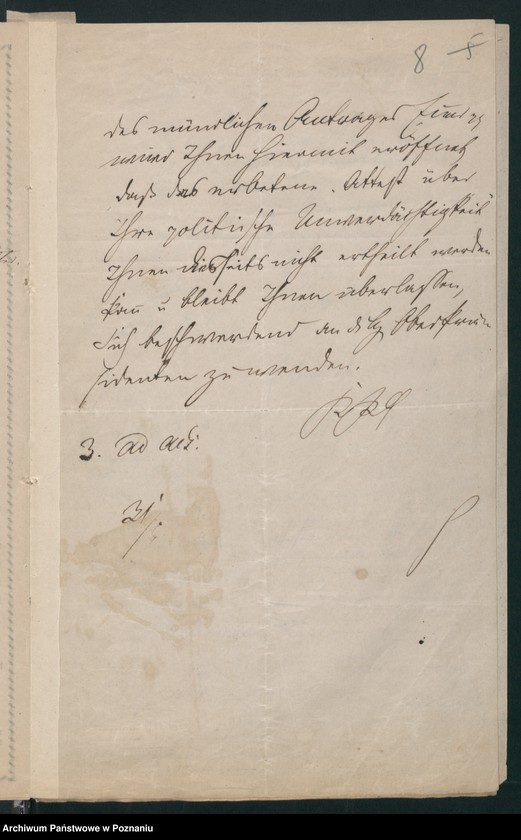 8 5
des mündlichen Antrages
wird Ihnen hiermit eröffnet
daß das erbetene Attest über
Ihre politische Unverdächtigkeit
Ihnen diesseits nicht ertheilt werden
kann u bleibt Ihnen überlassen,
Sich beschwerend an d Hg Oberpräsi-
sidenten zu wenden.
3. ad acta.
31/.
Archiwum Państwowe w Poznaniu